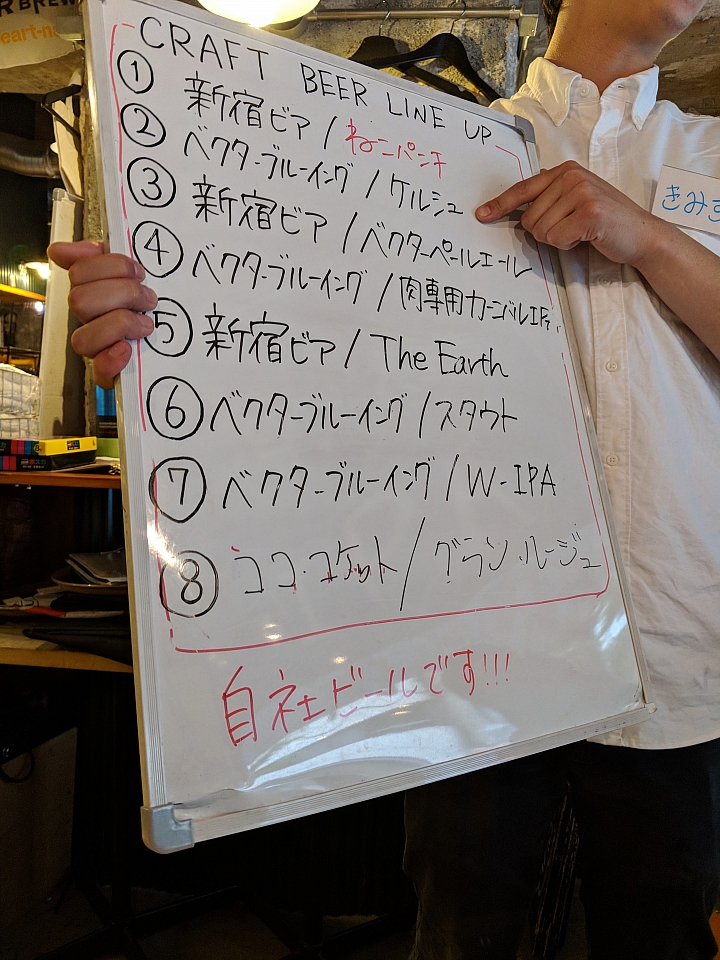 R BREW
eart-n
CRAFT BEER LINE UP
① 新宿ビア / ねこパンチ
② ベクターブルーイング / ケルシュ
③ 新宿ビア / ベクターペールエール
④ ベクターブルーイング / 肉専用カーニバルIPA
⑤ 新宿ビア / The Earth
⑥ ベクターブルーイング / スタウト
⑦ ベクターブルーイング / W-IPA
⑧ ココ・コケット / グラン・ルージュ
自社ビールです!!!
きみす